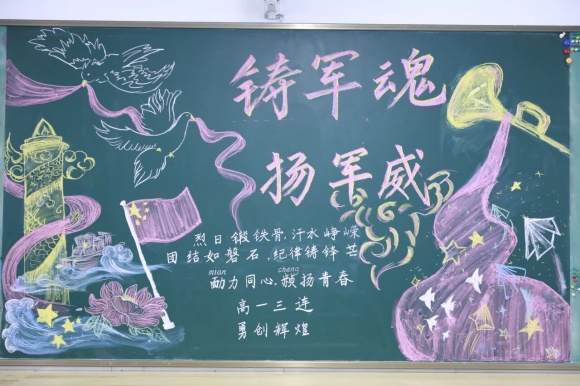 铸军魂
扬军威
烈日锻铁骨.汗水峥嵘
团结如磐石.纪律铸锋芒
nian cheng
力同心. 扬青春
高一三连
勇创辉煌